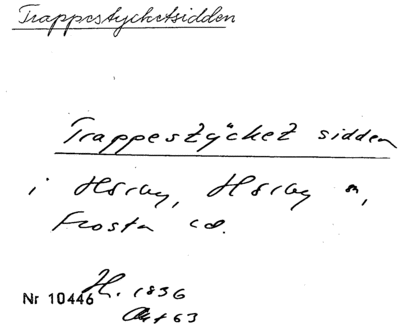 Trappestycketsidden
Trappestycket sidden
i Hörby, Hörby sn,
Frosta hd.
Nr 10446 H. 1836
Akt 63